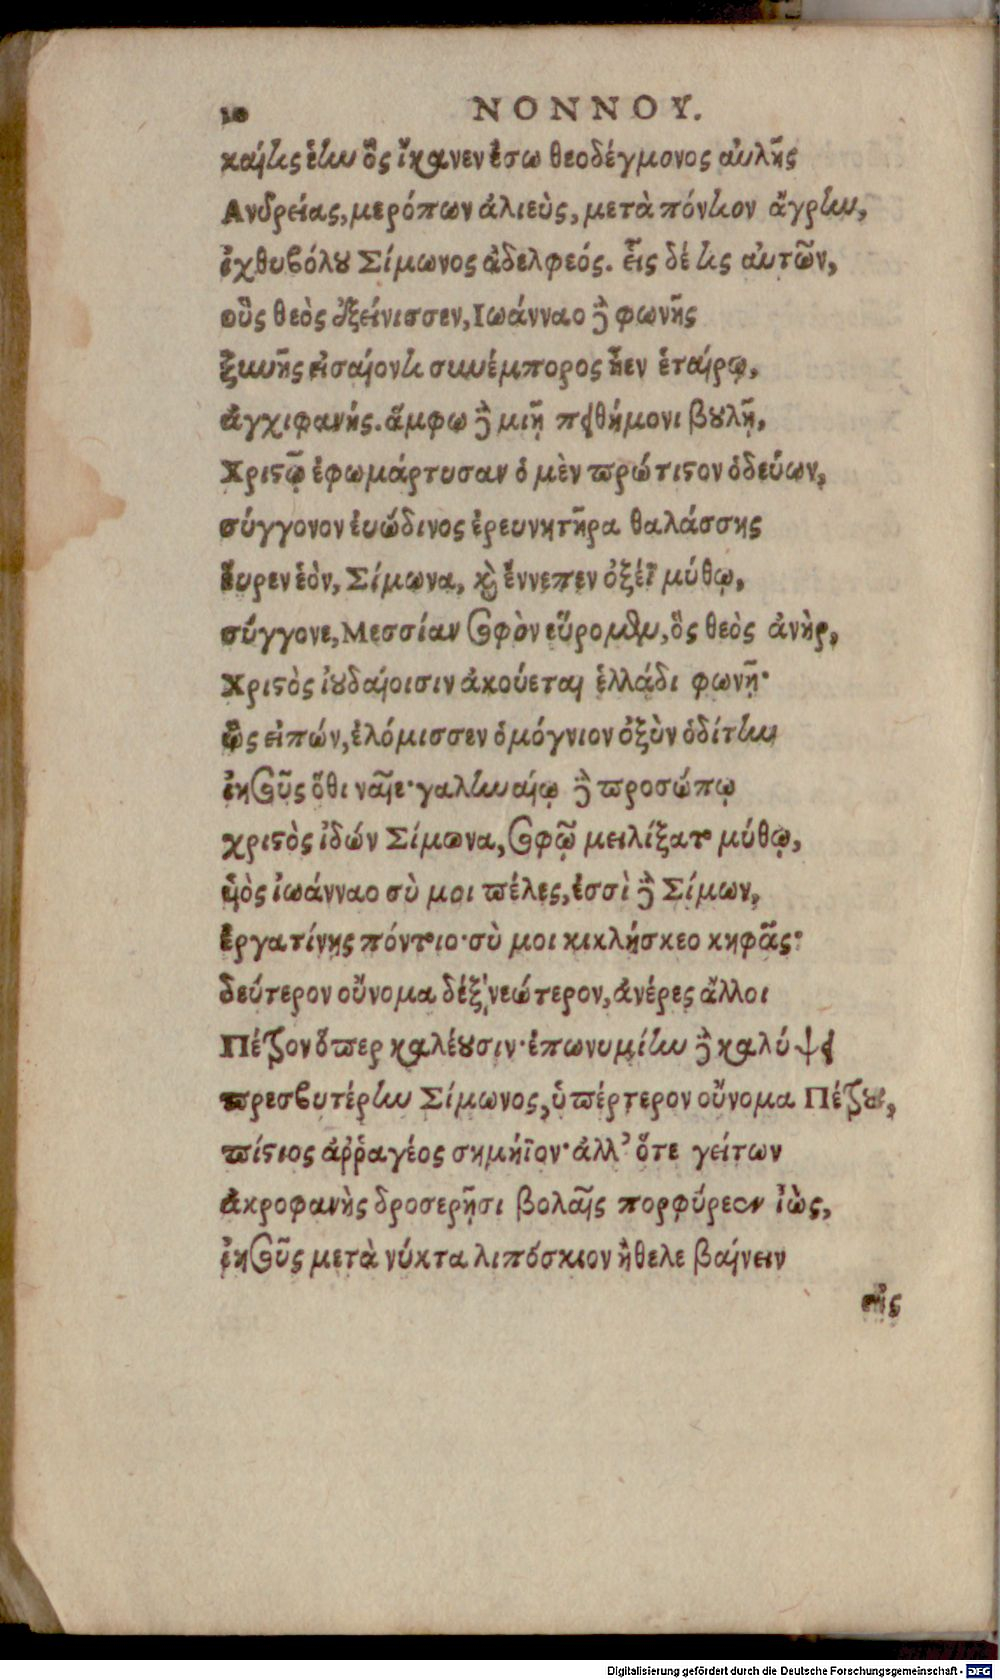 10 ΝΟΝΝΟΥ.
καίτις ἔην ὃς ἵκανεν ἔσω θεοδέγμονος αὐλῆς
Ανδρείας, μερόπων ἁλιεὺς, μετὰ πόντιον ἄγρην,
ἰχθυβόλου Σίμωνος ἀδελφεός. εἷς δέ τις αὐτῶν,
οὓς θεὸς ἐξείνισσεν, Ιωάνναο δὲ φωνῆς
ξυνῆς εἰσαίοντι συνέμπορος ἦεν ἑταίρῳ,
ἀγχιφανής. ἄμφω δὲ μιῇ πειθήμονι βουλῇ,
Χριστῷ ἐφωμάρτυσαν ὁ μὲν πρώτιστον ὁδεύων,
σύγγονον ἐυώδινος ἐρευνητῆρα θαλάσσης
εὗρεν ἑὸν, Σίμωνα, καὶ ἔννεπεν ὀξέϊ μύθῳ,
σύγγονε, Μεσσίαν σοφὸν εὕρομεν, ὃς θεὸς ἀνὴρ,
Χριστὸς ἰουδαίοισιν ἀκούεται ἑλλάδι φωνῇ·
ὣς εἰπών, ἐκόμισσεν ὁμόγνιον ὀξὺν ὁδίτην
ἰησοῦς ὅθι ναῖε· γαληναίῳ δὲ προσώπῳ
χριστὸς ἰδών Σίμωνα, σοφῷ μειλίξατο μύθῳ,
υἱὸς ἰωάνναο σὺ μοι πέλες, ἐσσὶ δὲ Σίμων,
ἐργατίνης πόντοιο· σὺ μοι κικλήσκεο κηφᾶς·
δεύτερον οὔνομα δέξο νεώτερον, ἀνέρες ἄλλοι
Πέτρον ὅπερ καλέουσιν· ἐπωνυμίην δὲ καλύψει
πρεσβυτέρην Σίμωνος, ὑπέρτερον οὔνομα Πέτρου,
πίστιος ἀῤῥαγέος σημήϊον· ἀλλ' ὅτε γείτων
ἀκροφανὴς δροσερῇσι βολαῖς πορφύρεον ἰὼς,
ἰησοῦς μετὰ νύκτα λιπόσκιον ἤθελε βαίνειν
εἰς
Digitalisierung gefördert durch die Deutsche Forschungsgemeinschaft - DFG